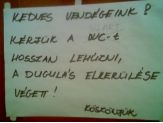 KEDVES VENDÉGEINK?
KÉRJÜK A WC-t
HOSSZAN LEHÚZNI,
A DUGULÁS ELKERÜLÉSE
VÉGETT!
KÖSZÖNJÜK